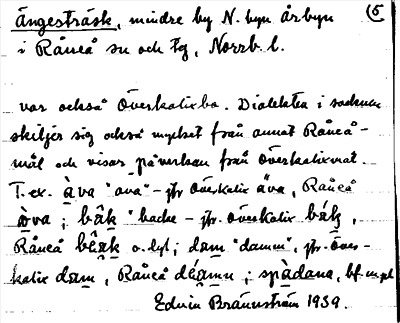 Ängesträsk, mindre by N. byn Årbyn (5
i Råneå sn och tg, Norrb. l.
var också Överkalixbo. Dialekten i socknen
skiljer sig också mycket från annat Råneå-
mål och visar påverkan från Överkalixmål.
T. ex. àva "ava" - jfr Överkalix äva, Råneå
àva; bâk "backe - jfr. Överkalix bák,
Råneå bêak o. dyl; dam "damm", jfr. Över-
kalix dam, Råneå déamn; spàdana, bf. mpl
Edvin Brännström 1939.